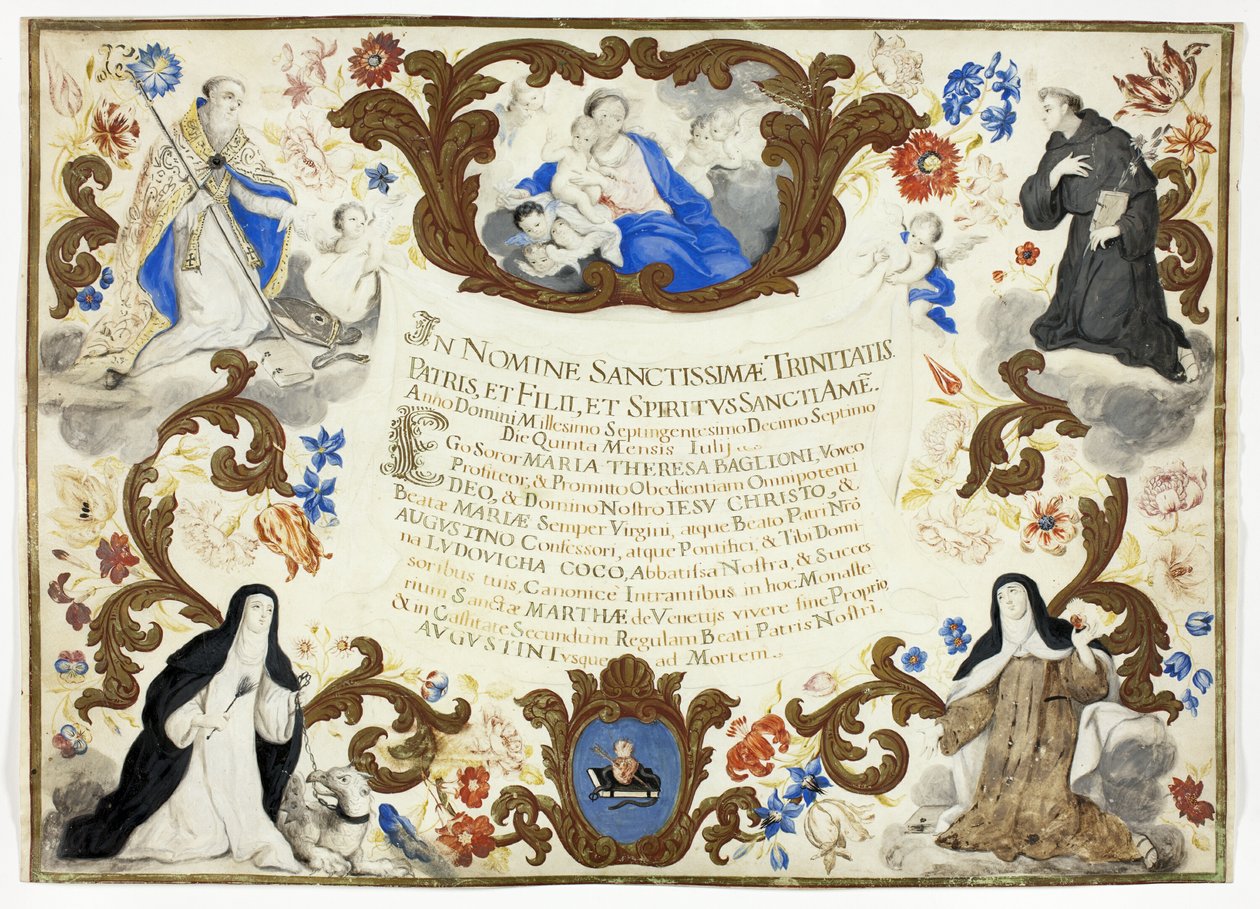 IN NOMINE SANCTISSIMÆ TRINITATIS.
PATRIS, ET FILII, ET SPIRITVS SANCTI AMẼ.
Anno Domini Millesimo Septingentesimo Decimo Septimo
Die Quinta Mensis Iulij
EGo Soror MARIA THERESA BAGLIONI, Voveo
Profiteor, & Promitto Obedientiam Omnipotenti
DEO, & Domino Nostro IESV CHRISTO, &
Beatæ MARIÆ Semper Virgini, atque Beato Patri Nr̃o
AUGUSTINO Confessori, atque Pontifici, & Tibi Domi-
na LVDOVICHA COCO, Abbatissa Nostra, & Succes
soribus tuis, Canonice Intrantibus in hoc Monaste
rium Sanctæ MARTHÆ de Venetijs vivere sine Proprio,
& in Castitate Secundum Regulam Beati Patris Nostri.
AVGVSTINI vsque ad Mortem.